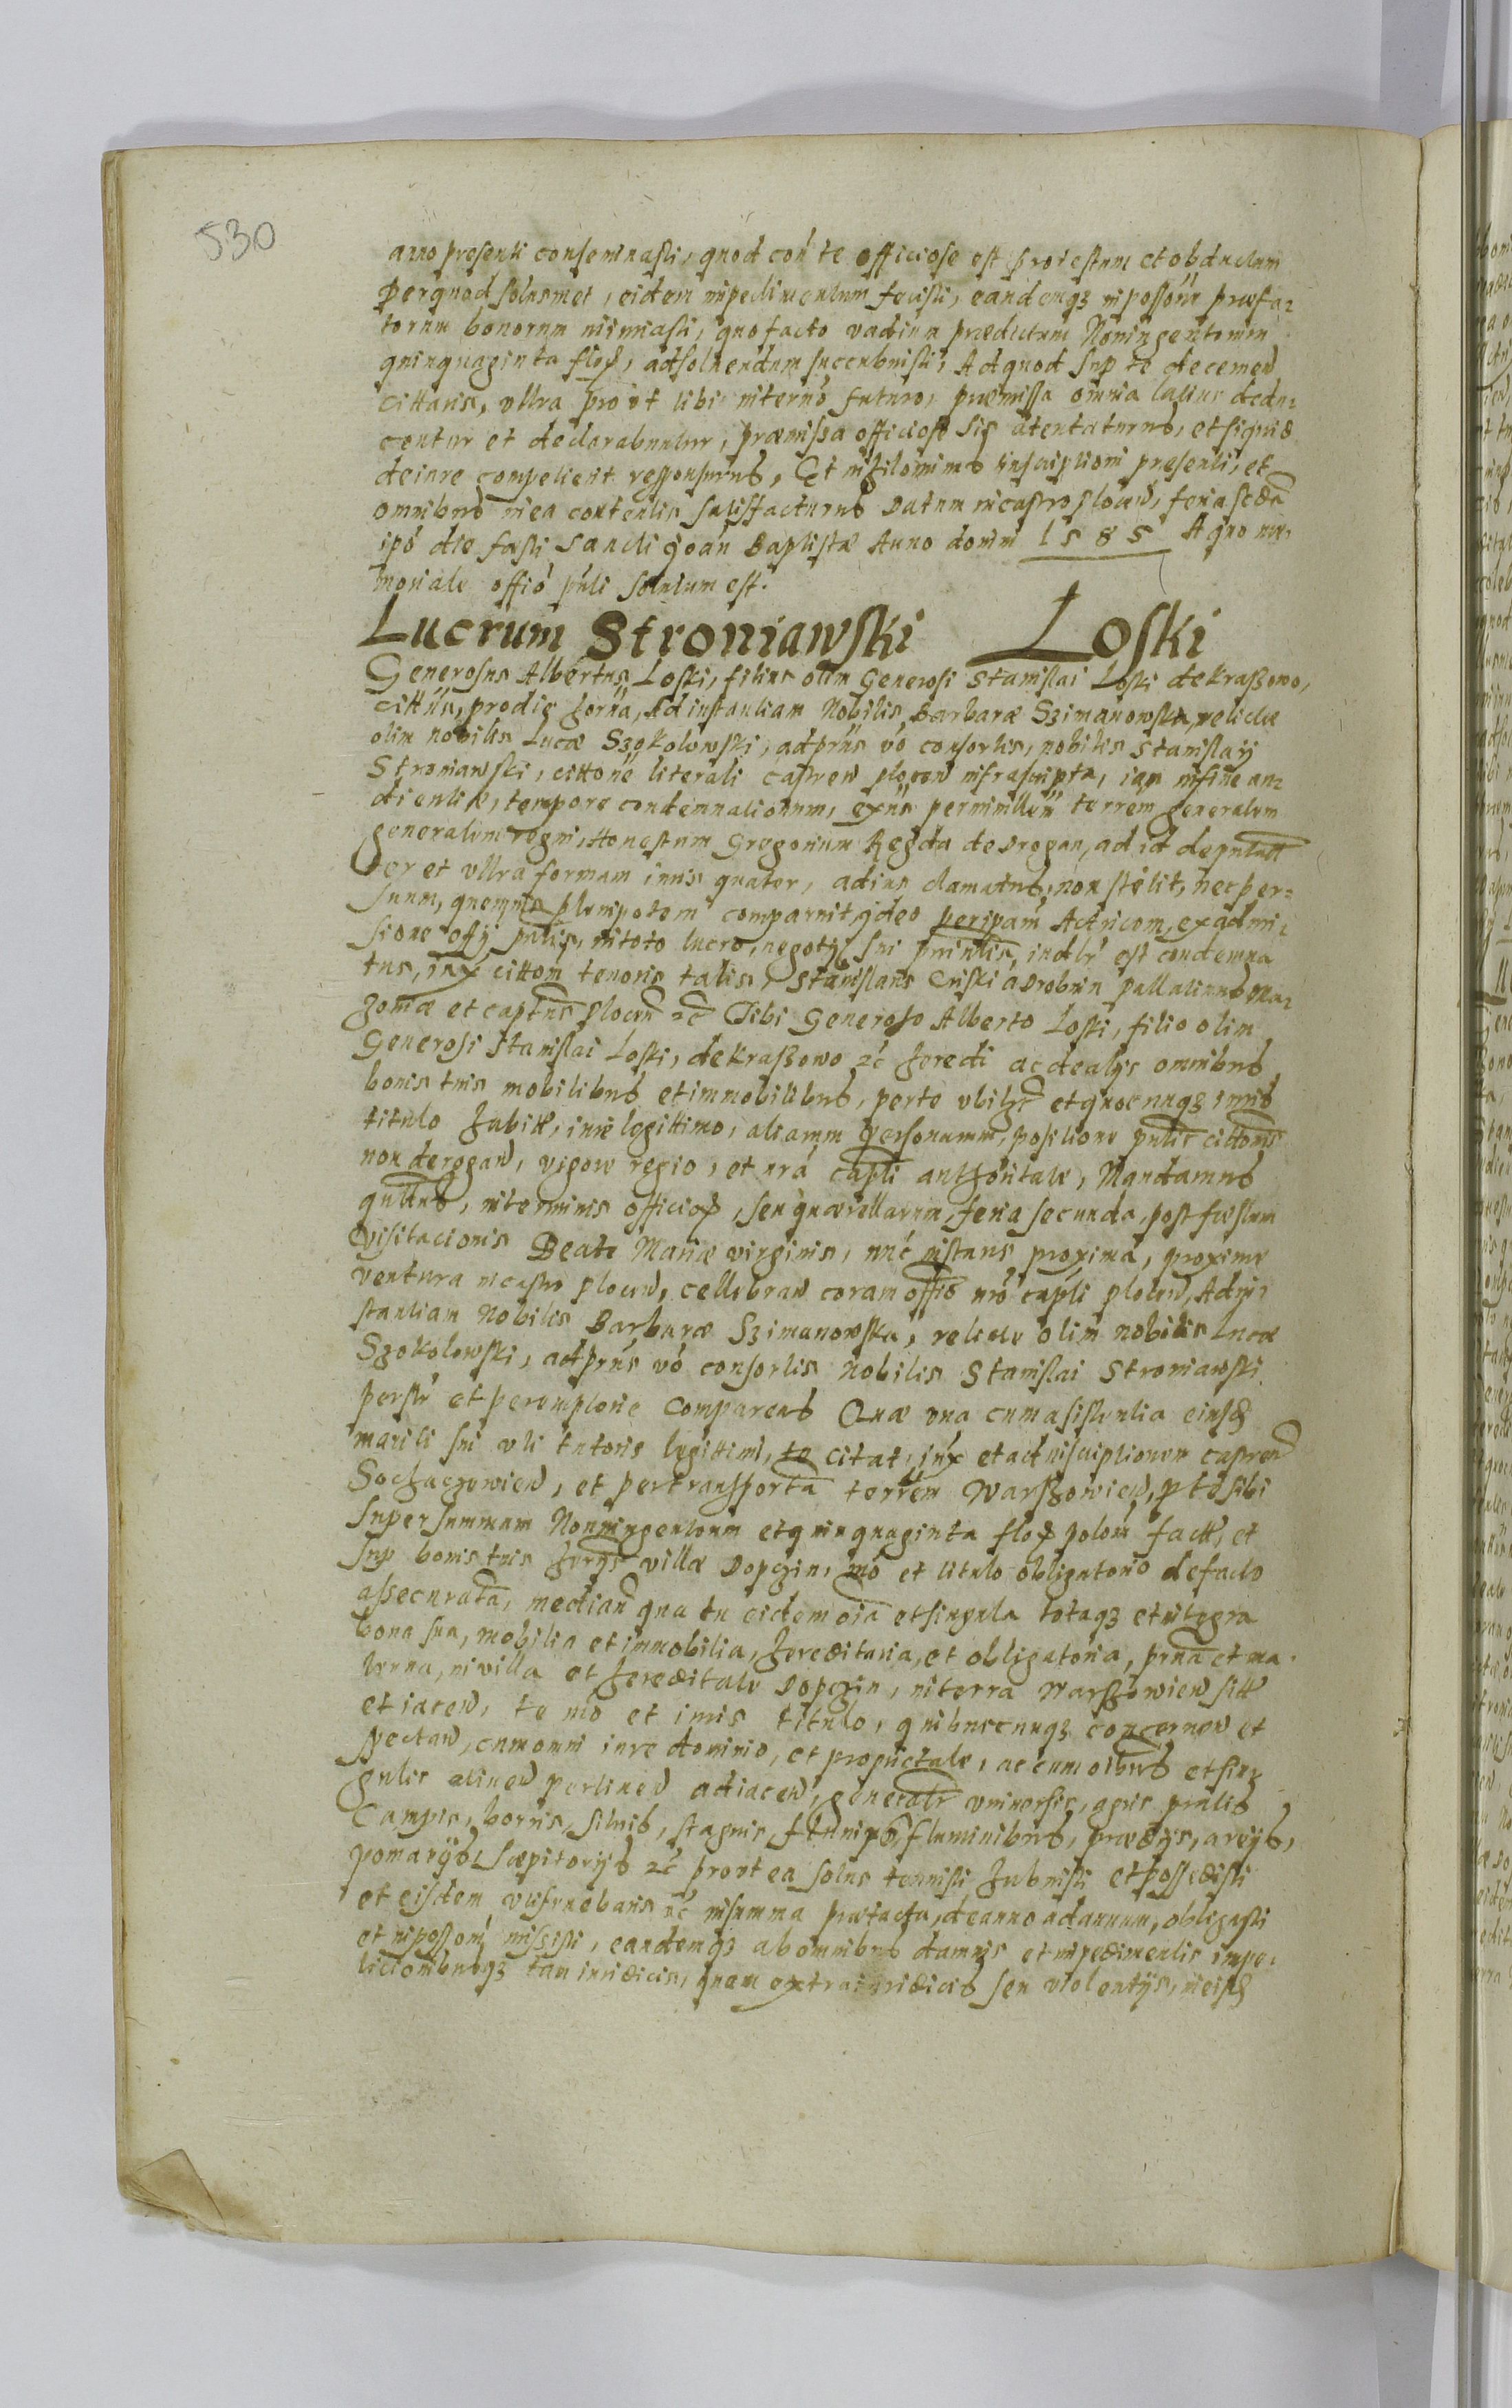 530
anno presenti conseminasti, quod con te officiose est protestum et obductum
Per quod solusmet, eidem impedimentum fecisti, eandemq3 in possone præfa-
torum bonorum minuasti, quo facto vadium prædictum Noningentorum
quinquaginta flor, ad solvendum succubuisti, Ad quod sup te decernen
cittaris, ultra prout tibi in termo futuro, præmissa omnia latius dedu-
centur et declarabuntur, præmissa officiose sis attentaturus, et si quid
de iure competierit responsurus, Et nihilominus inscriptioni presenti, et
omnibus in ea contentis satisfacturus Datum in castro plocen, feria scda
ipo die festi sancti Joan Baptistæ Anno domini 1585 A quo me-
moriale offio pnti solutum est.
Lucrum Stroniawski Loski
Generosus Albertus Loski, filius olim Generosi Stanislai Loski de Kraszowo,
cittus, pro die horna, Ad instantiam Nobilis Barbaræ Szimanowska, relictæ
olim nobilis Lucæ Szokolowski, ad prns vo consortis, nobilis Stanislaij
Stroniawski, cittone literali castren plocen infrascripta, iam in fine au-
dientiæ, tempore condemnationum, exns per ministlem terrem generalem
generalem regni, Honestum Gregorium Regda de Drogan, ad id deputatt
ter et ultra formam iuris quater, adius clamatus, non stetit, nec per-
suum, quempis plenipotem comparuit, ideo per ipam Actricem, ex admi-
sione offij pntis, in toto lucro, negotij sui printis, indlr est condemna
tus, iux cittom tenoris talis, Stanislaus Criski a Drobnin pallatinus Ma-
zoviæ et captns Plocen 2c Tibi Generoso Alberto Loski, filio olim
Generosi Stanislai Loski, de Kraszowo 2c heredi ac de alijs omnibus
bonis tuis mobilibus et immobilibus, per te ubilzt et quocunq3 iuris
titulo habitt, iure legittimo, aliarum personarum, positione pntis cittonis
non derogan, vigore regio, et nra capli authoritate, Mandamus
qtnus, in terminis officior, seu quærellarum, feria secunda, post festum
Visitacionis Beate Mariæ virginis, nunc instans proxima, proxime
ventura in castro plocen, cellebran coram offio nro capli plocen, Ad in-
stantiam Nobilis Barbaræ Szimanowska, relictæ olim nobilis Lucæ
Szokolowski, ad prns vo consortis Nobilis Stanislai Stroniawski
perslr et peremptorie Compareas Quæ una cum asistentia eiusd
mariti sui uti tutoris legittimi, te citat, iux et ad inscriptionem castren
Sochaczowien, et per transporta terrem Warszowien, p te sibi
super summam Noningentorum et quinquaginta flor polon factt, et
sup bonis tuis herijs villæ Dopczin, mo et titulo obligatorio de facto
assecurata, median qua tu eidem oia et singula totaq3 et integra
bona sua, mobilia et immobilia, hereditaria, et obligatoria, prna et ma-
terna, in villa et hereditate Dopczin, in terra Warszowien sitt
et iacen, te mo et iuris titulo, quibuscunq3 concernen et
spectan, cum omni iure dominio, et proprietate, ac cum oibus et sin-
gulis attinen pertinen adiacen, generatr universis, agris pratis
Campis, borris, silvis, stagnis, fluminibus, prædijs, areijs,
pomarijs, sæpitorijs 2c prout ea solus tenuisti habuisti et possedisti
et eisdem usfruebaris 2c in summa prætacta, de anno ad annum, obligasti
et in possom missisti, eandemq3 ab omnibus damnis et impedimentis impe-
ticionibusq3 tam iuridicis, quam extraiuridicis seu violentijs, in eisd